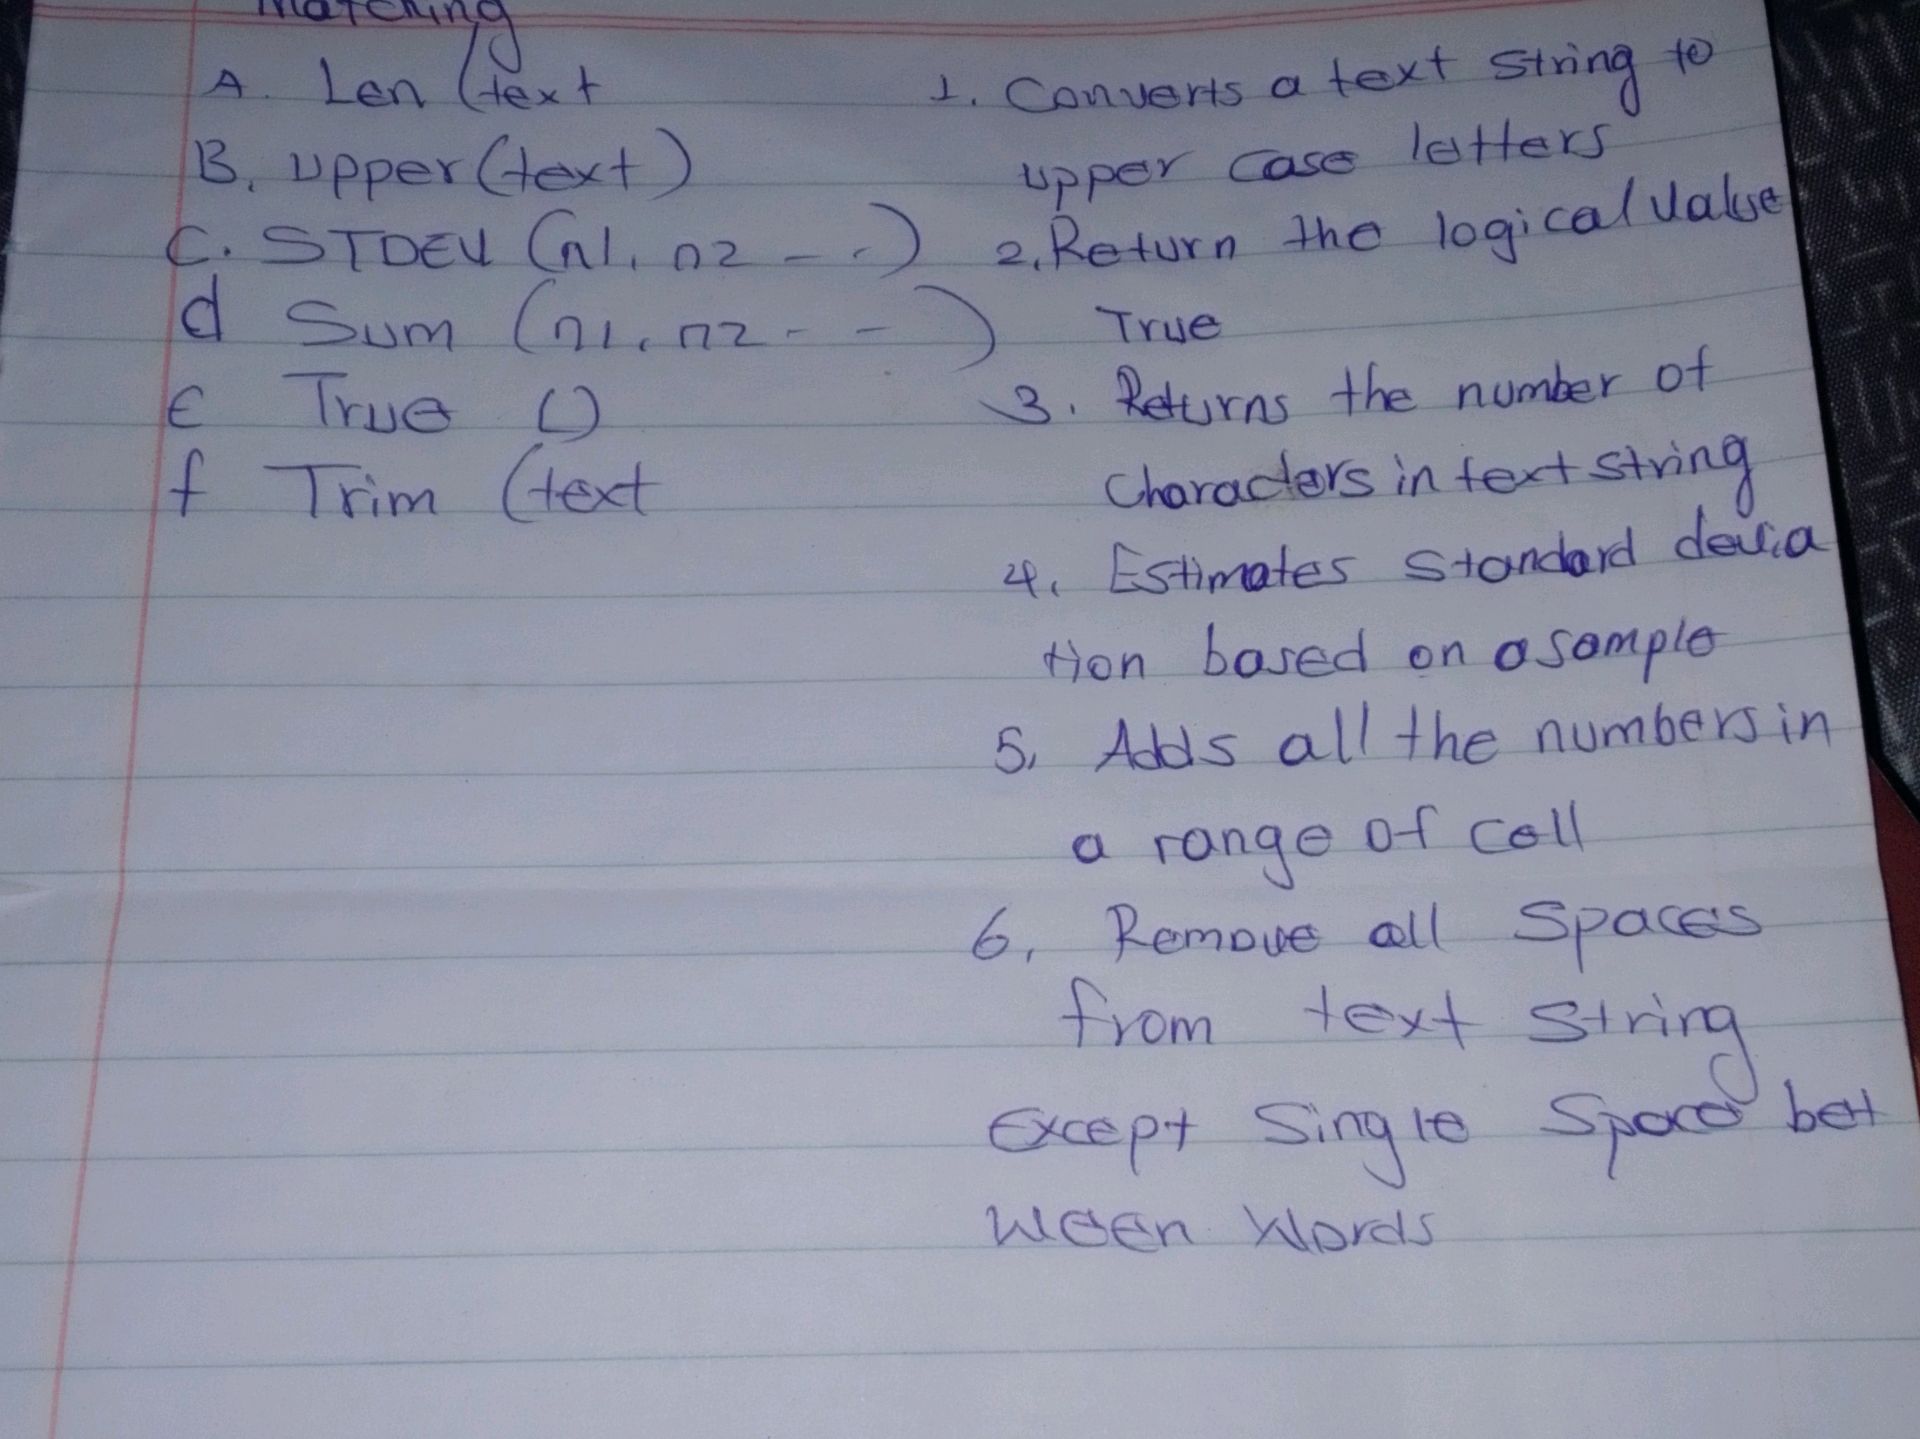 Matching
A. Len (text 1. Converts a text string to
B. upper (text) upper case letters
C. STDEV (n1, n2 - -) 2. Return the logical value
d Sum (n1, n2 - - ) True
E True () 3. Returns the number of
f Trim (text Characters in text string
4. Estimates standard devia
tion based on a sample
5. Adds all the numbers in
a range of cell
6. Remove all Spaces
from text string
Except Single Space bet
ween words